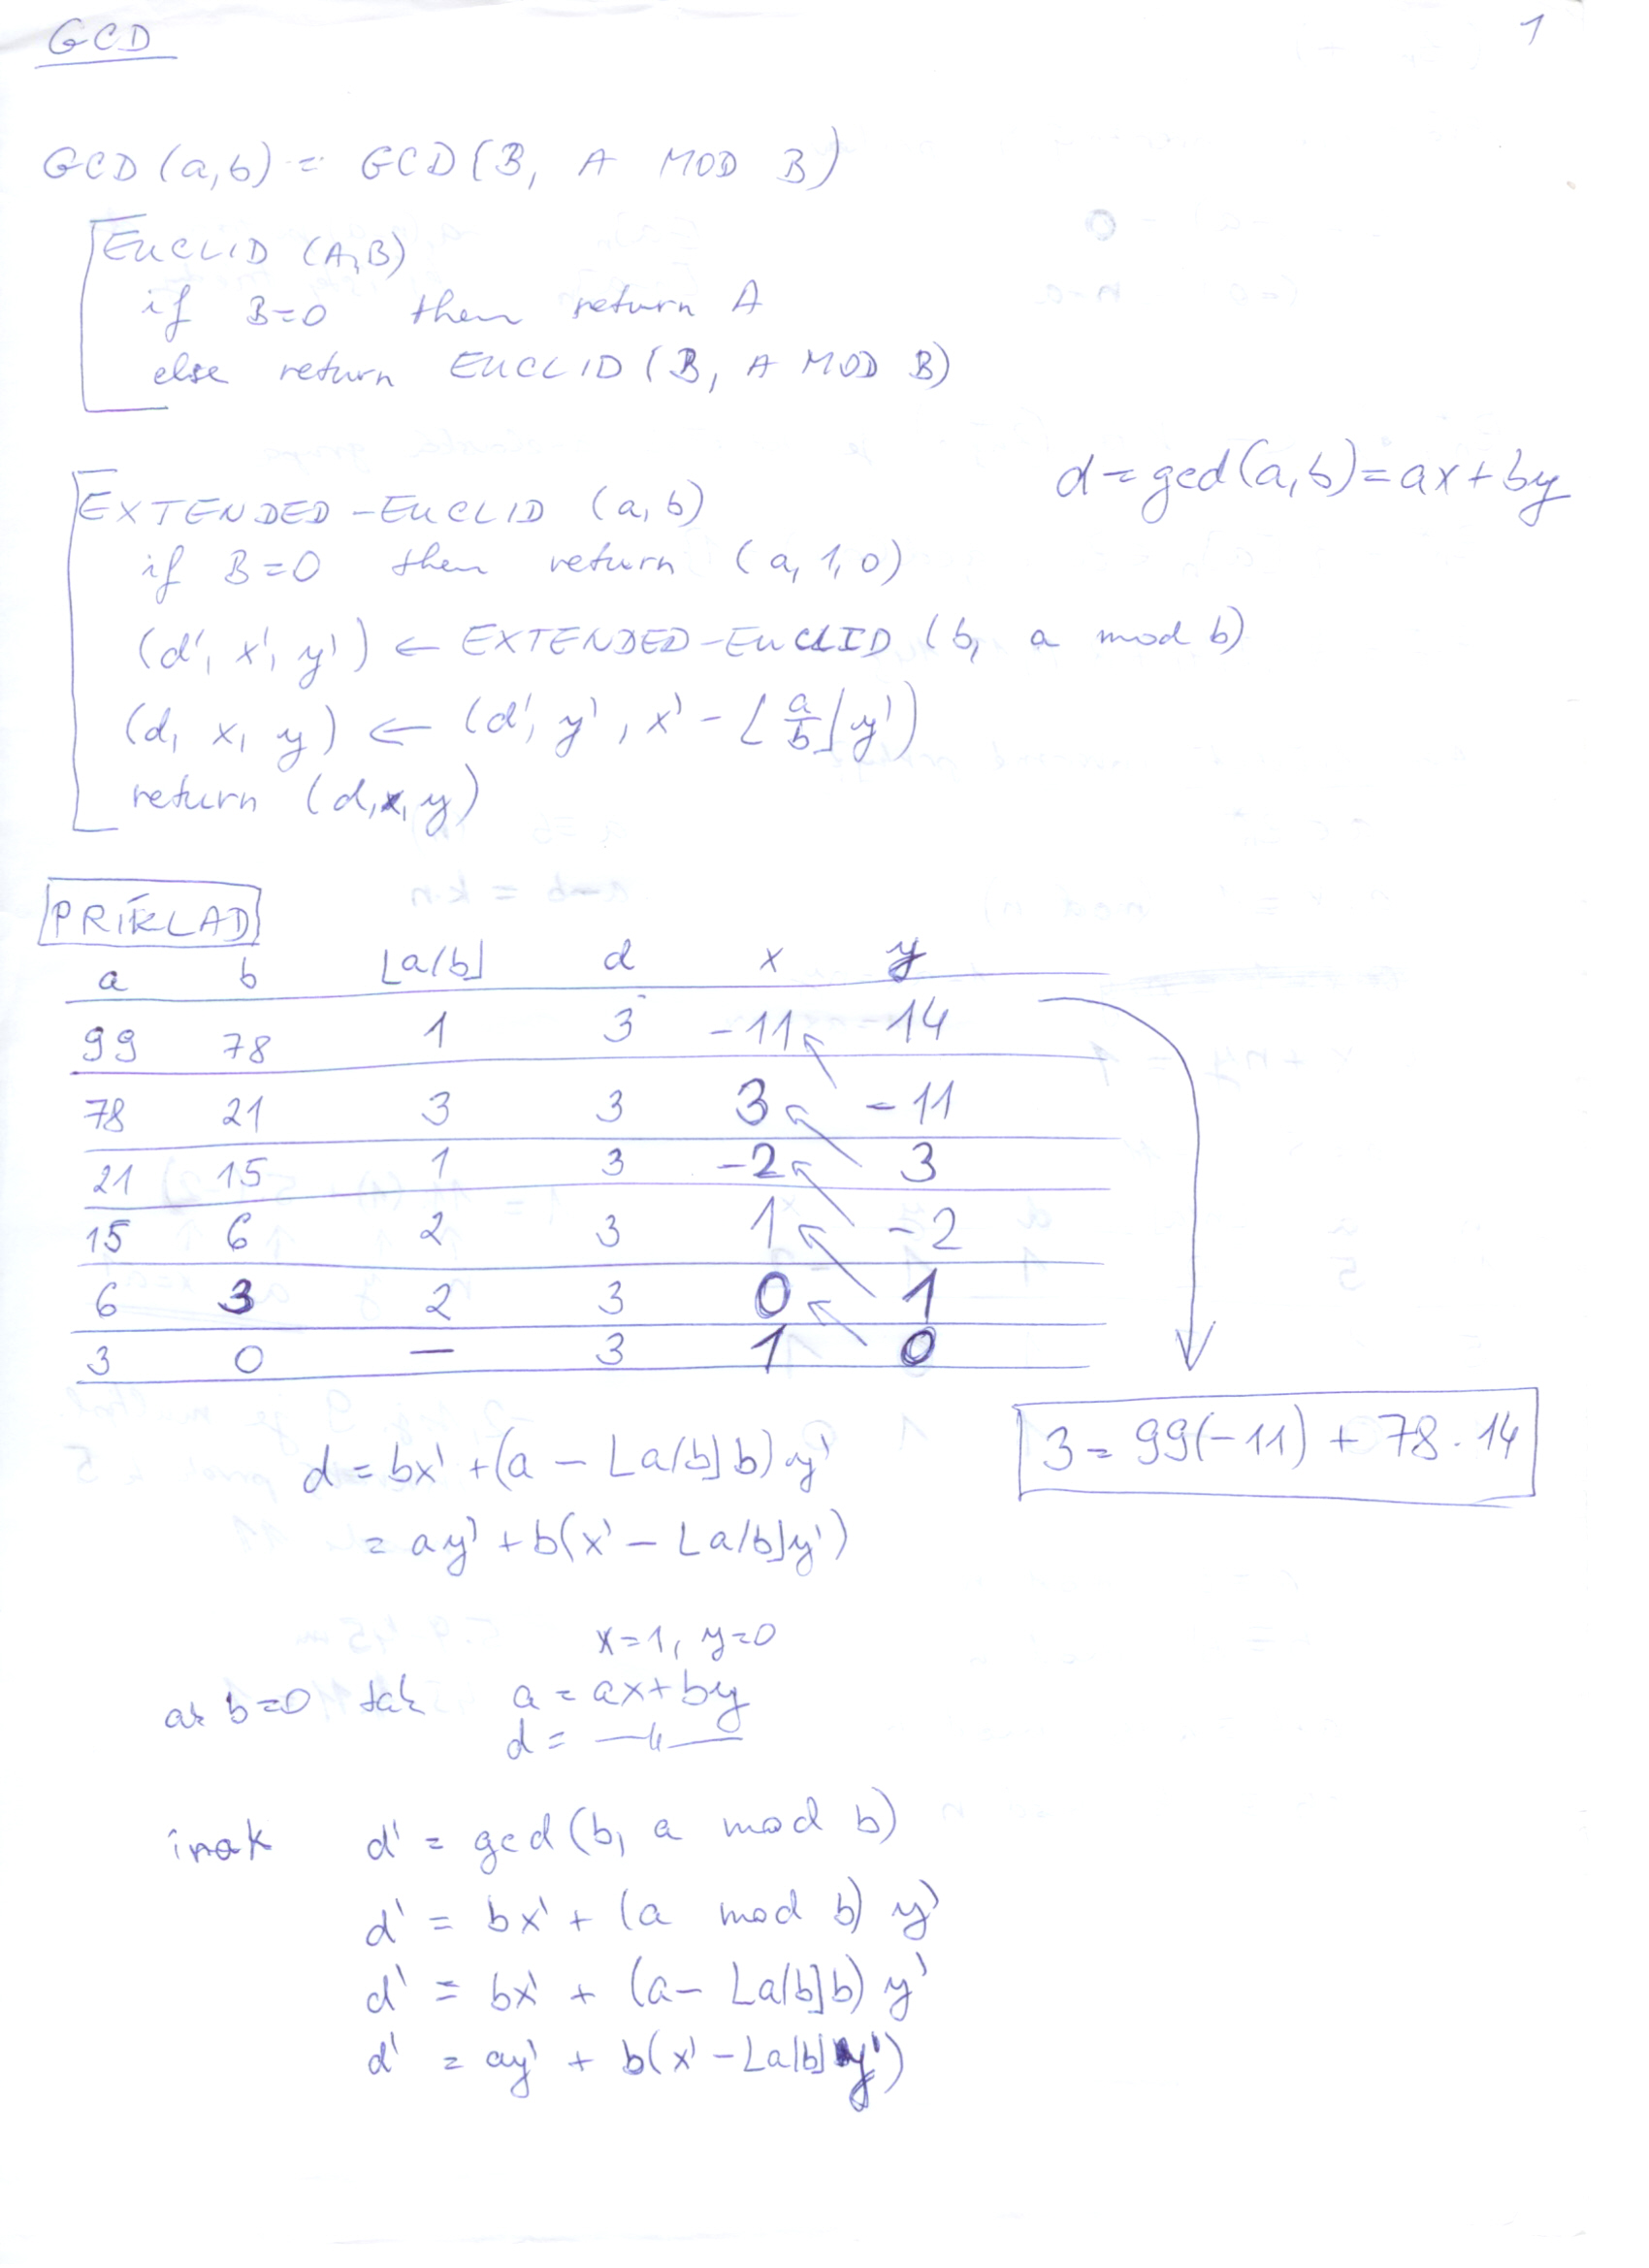 GCD 1
GCD (a,b) = GCD (B, A MOD B)
EUCLID (A,B)
if B=0 then return A
else return EUCLID (B, A MOD B)
d = gcd(a,b) = ax + by
EXTENDED-EUCLID (a, b)
if B=0 then return (a, 1, 0)
(d', x', y') ← EXTENDED-EUCLID (b, a mod b)
(d, x, y) ← (d', y', x' - ⌊a/b⌋ y')
return (d, x, y)
PRÍKLAD
a b ⌊a/b⌋ d x y
99 78 1 3 -11 14
78 21 3 3 3 -11
21 15 1 3 -2 3
15 6 2 3 1 -2
6 3 2 3 0 1
3 0 — 3 1 0
3 = 99(-11) + 78 . 14
d = bx' + (a - ⌊a/b⌋ b) y'
= ay' + b(x' - ⌊a/b⌋ y')
x=1, y=0
ak b=0 tak a = ax + by
d = —〃—
inak d' = gcd (b, a mod b)
d' = bx' + (a mod b) y'
d' = bx' + (a - ⌊a/b⌋ b) y'
d' = ay' + b(x' - ⌊a/b⌋ y')